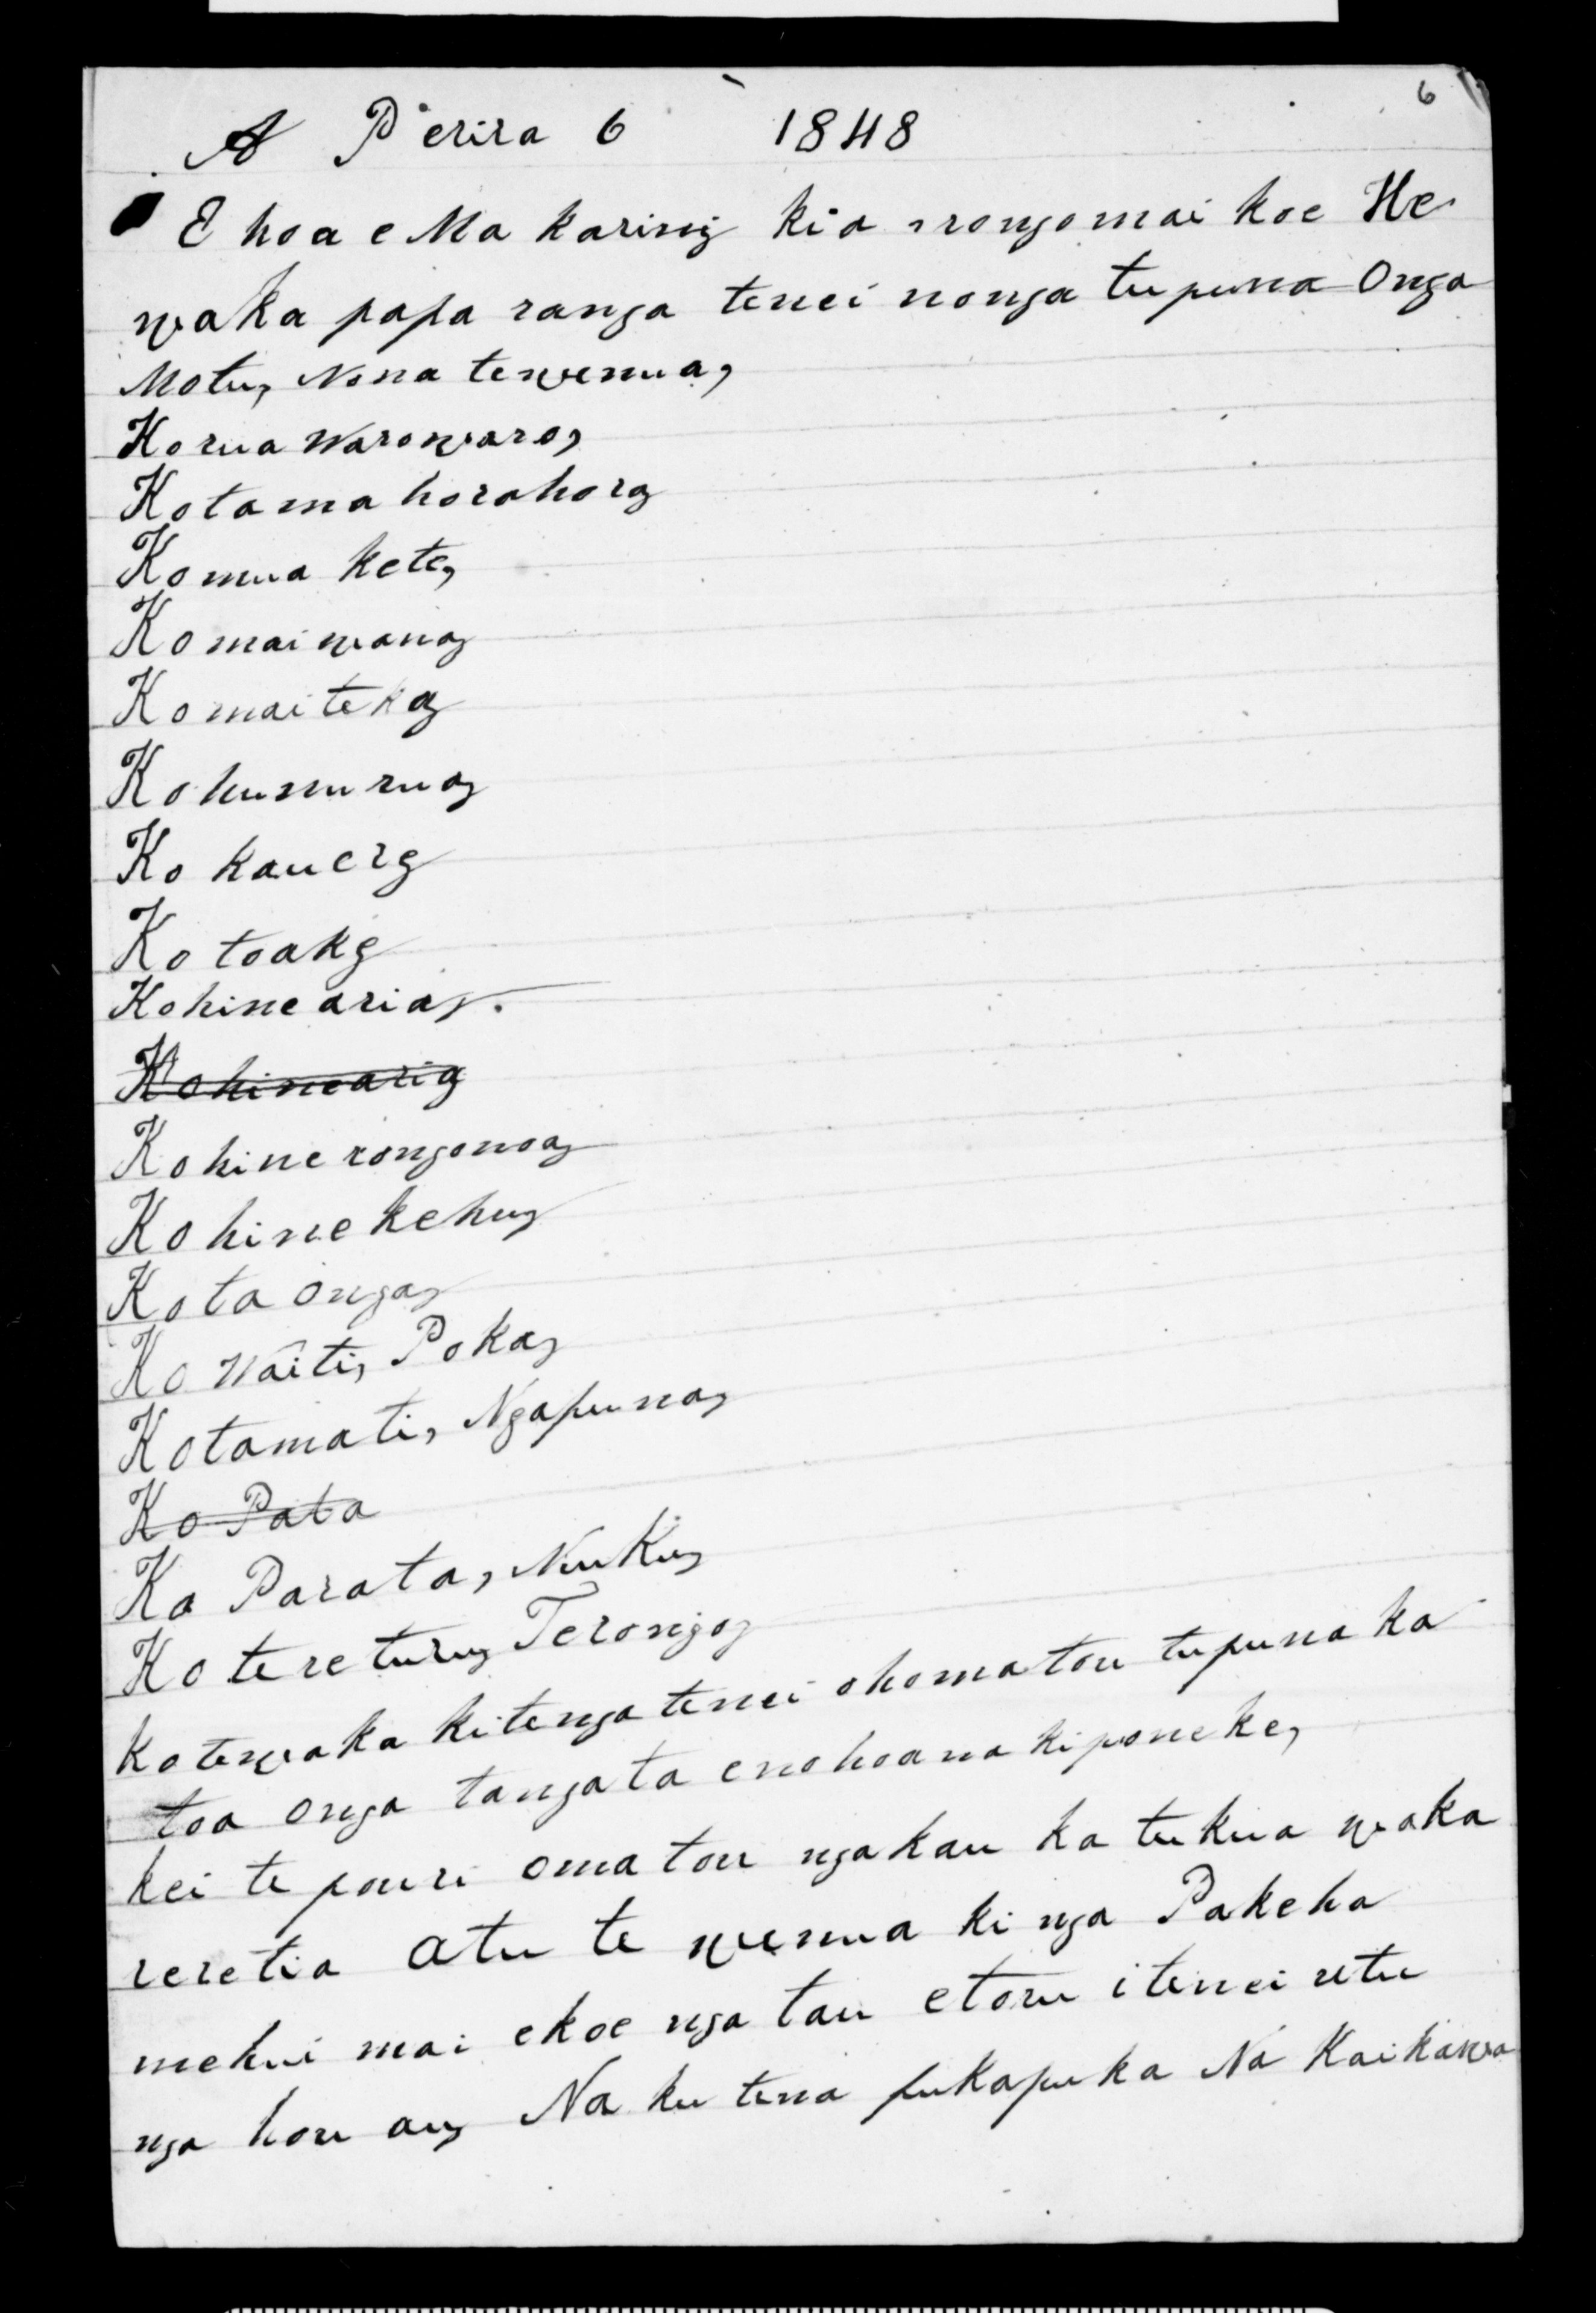 6
A Perira 6 1848
E hoa e Ma karini, kia rongo mai koe He
waka papa ranga tenei nonga tupuna Onga
Motu, Nona tewenua,
Korua Warowaro,
Kotama horahora,
Komua kete,
Komaiwana,
Komaiteka,
Kohunurua,
Ko kauere,
Ko toake,
Kohinearia,.
Kohinearia,
Kohinerongonoa,
Kohinekehu,
Kota onga,
Ko Waiti, Poka,
Kotamati, Ngapuna,
Ko Pata
Ko Parata, Nuku,
Ko te re turu, Terongo,
kotewaka kitenga tenei ohomatou tupuna ka
toa onga tangata enohoana kiponeke,
kei te pouri omatou ngakau ka tukua waka
reretia atu te wenua ki nga Pakeha
mehui mai ekoe nga tau etoru i tenei utu
nga hou au, Na ku tena pukapuka Na Kaikawa